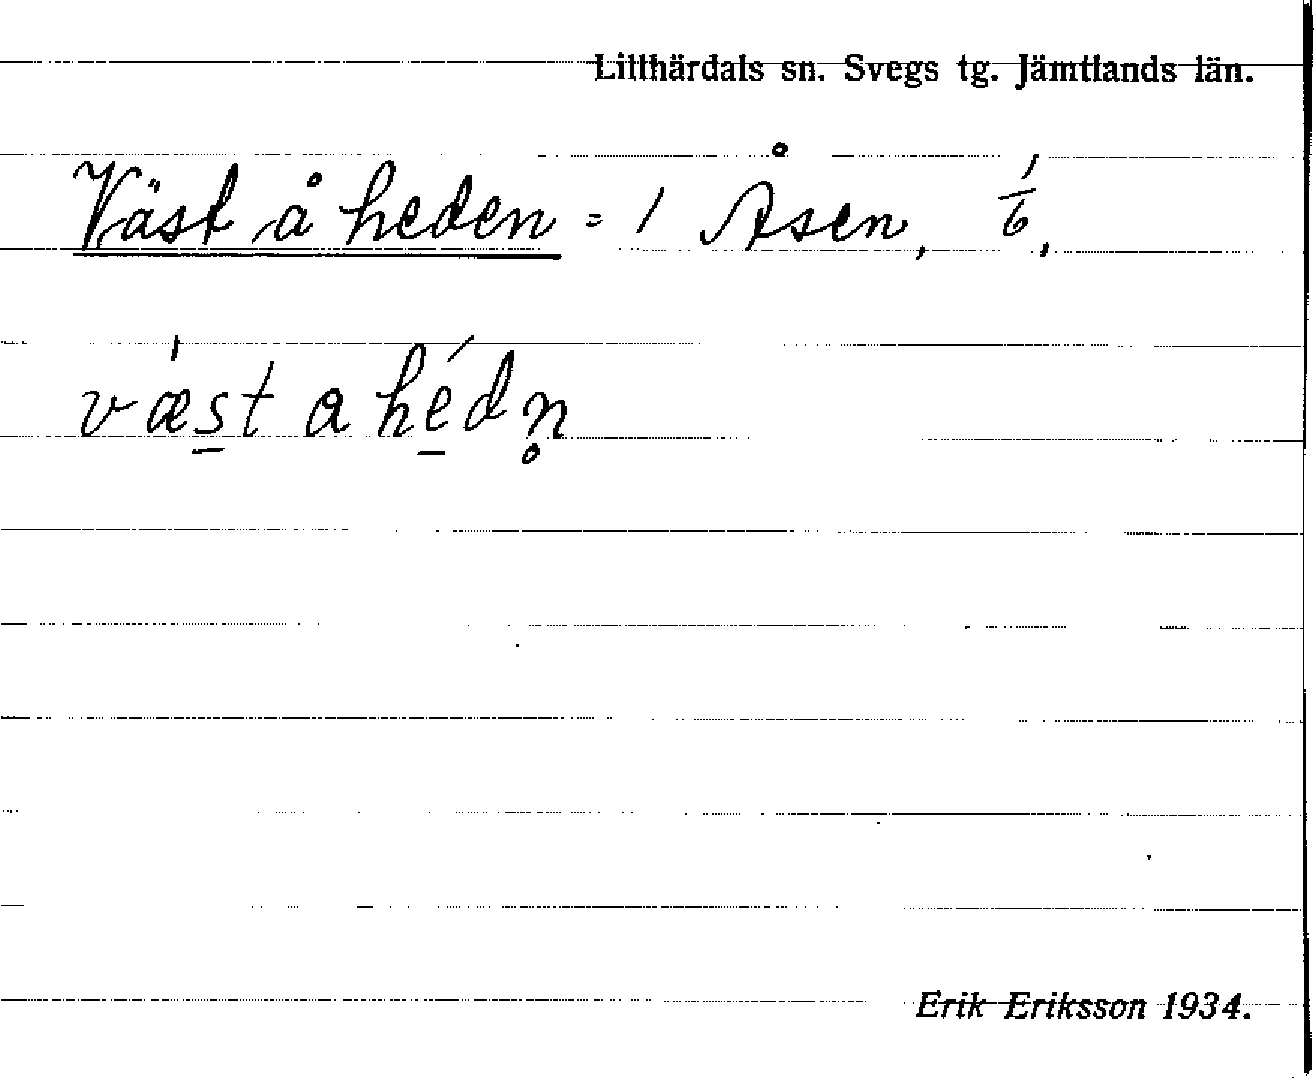 Lillhärdals sn. Svegs tg. Jämtlands län.
Väst å heden = 1 Åsen, 1/6,
væ̍s̲t a hé̲dn̥
Erik Eriksson 1934.